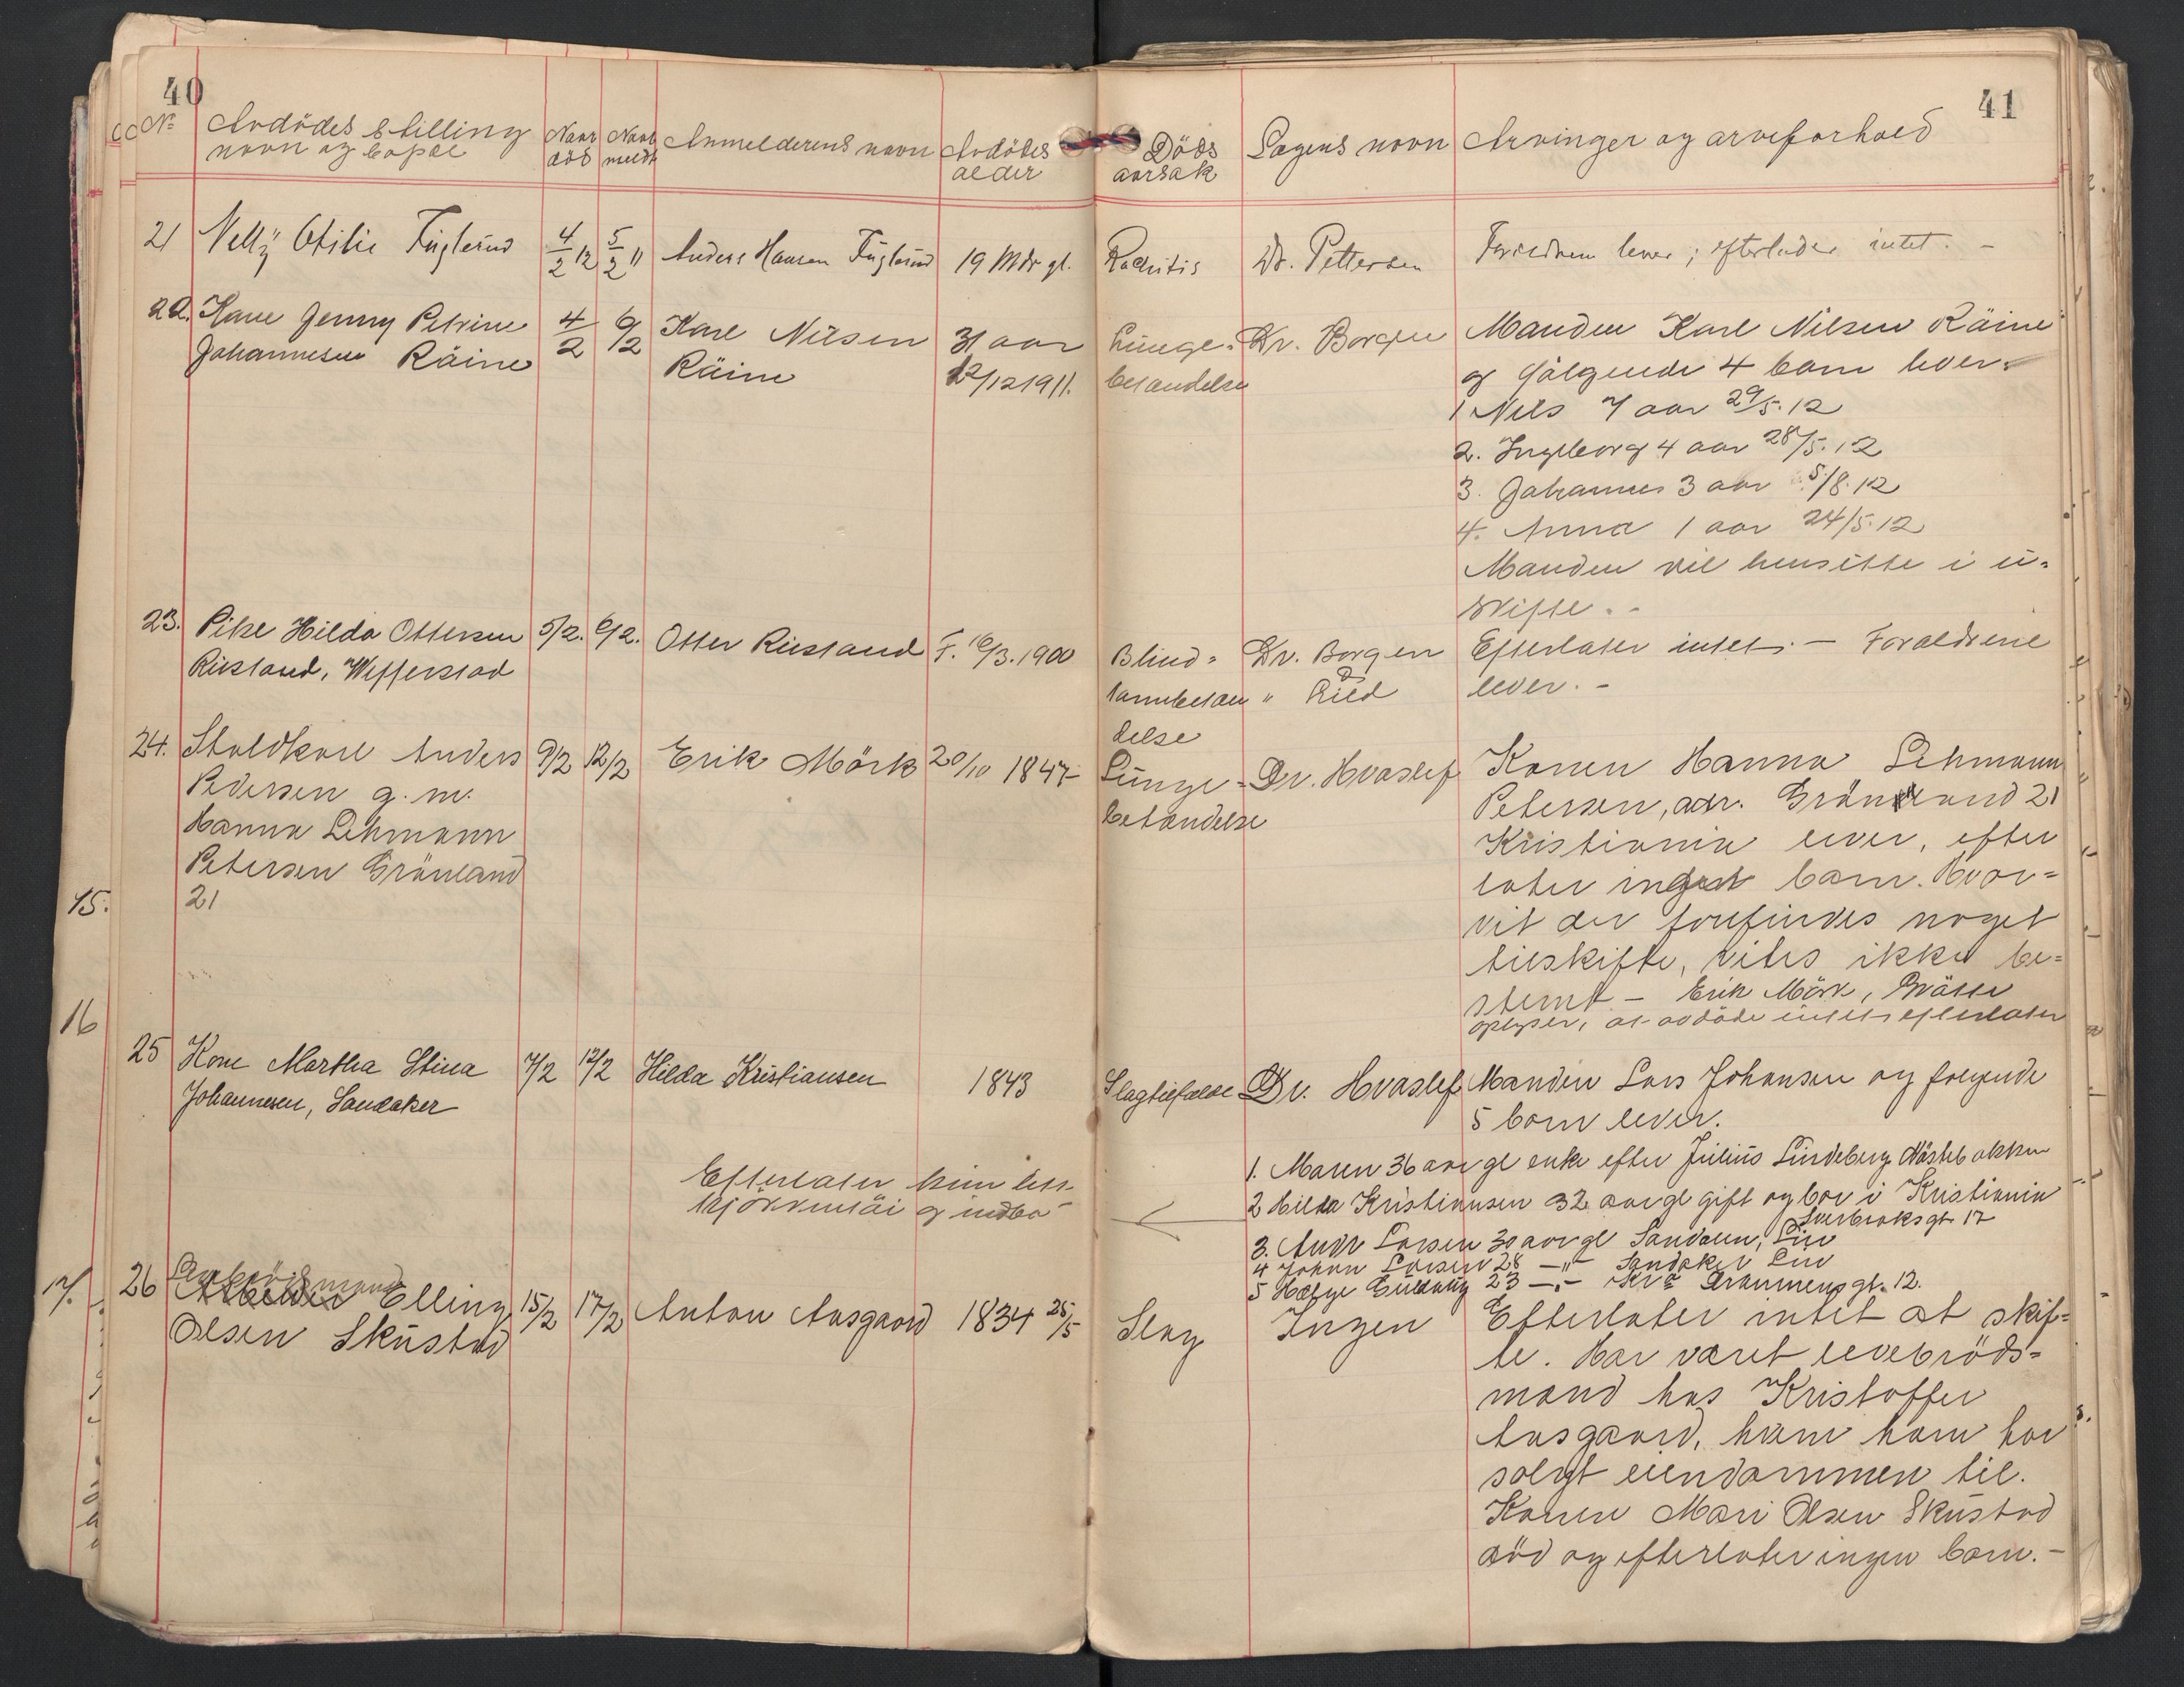 40
41
No Avdödes stilling navn og bopæl
Naar död
Naar meldt
Anmelderens navn
Avdödes alder
Döds aarsak
Lægens navn
Arvinger og arveforhold
21 Nelly Otilie Fuglerud 4/2 12 5/2 Anders Hansen Fuglerud 19 Mdr gl. Rachitis Dr. Pettersen Forældrene lever; efterlader intet. -
22. Kone Jenny Petrine 4/2 6/2 Karl Nilsen 31 aar Lunge= Dr. Borgen Manden Karl Nilsen Räine
Johannesen Räine Räine 12/12 1911. betændelse og følgende 4 barn lever.
1 Nils 7 aar 29/5.12
2. Ingeborg 4 aar 28/5.12
3. Johannes 3 aar 5/8.12
4. Anna 1 aar 24/5.12
Manden vil hensitte i u=
skifte. -
23. Pike Hilda Ottersen 5/2. 6/2. Otter Rustand F. 16/3.1900 Blind= Dr. Borgen Efterlater intet. - Forældrene
Rustand, Wefferstad tarmbetæn " lever. -
delse
24. Anders 9/2 12/2 Erik Mörk 20/10 1847 Lunge= Dr. Hvaslef Konen Hanna Lehmann
Pedersen g. m. betændelse Petersen, adr. Grönland 21
Hanna Lehmann Kristiania lever, efter
Petersen Grönland later barn. Hvor=
21 vit der forefindes noget
til skifte, vites ikke be=
stemt - Erik Mörk,
oplyser, at avdöde intet efterlater
15.
16
25 Kone Martha Stina 7/2 12/2 Hilda Kristiansen 1843 Slagtilfælde Dr. Hvaslef Manden Lars Johansen og følgende
Johannesen, Sandaker 5 barn lever.
1. Maren 36 aar gl enke efter Julius Lindeberg
2 Hilda Kristiansen 32 aar gl gift og bor i Kristiania
gt. 17
Efterlater kun litt
og indbo
3. Andr Larsen 30 aar gl Lier
4 Johan Larsen 28 -"- Sandaker Lier
5 Helge 23 -"- Kra Drammensgt. 12.
17.
26 Elling 15/2 17/2 Anton Aasgaard 1834 25/5 Slag Ingen Efterlater intet at skif=
Olsen Skustad te. Har været levebröds=
mand hos Kristoffer
Aasgaard, hvem han har
solgt eiendommen til.
Konen Mari Olsen Skustad
död og efterlater ingen barn. -